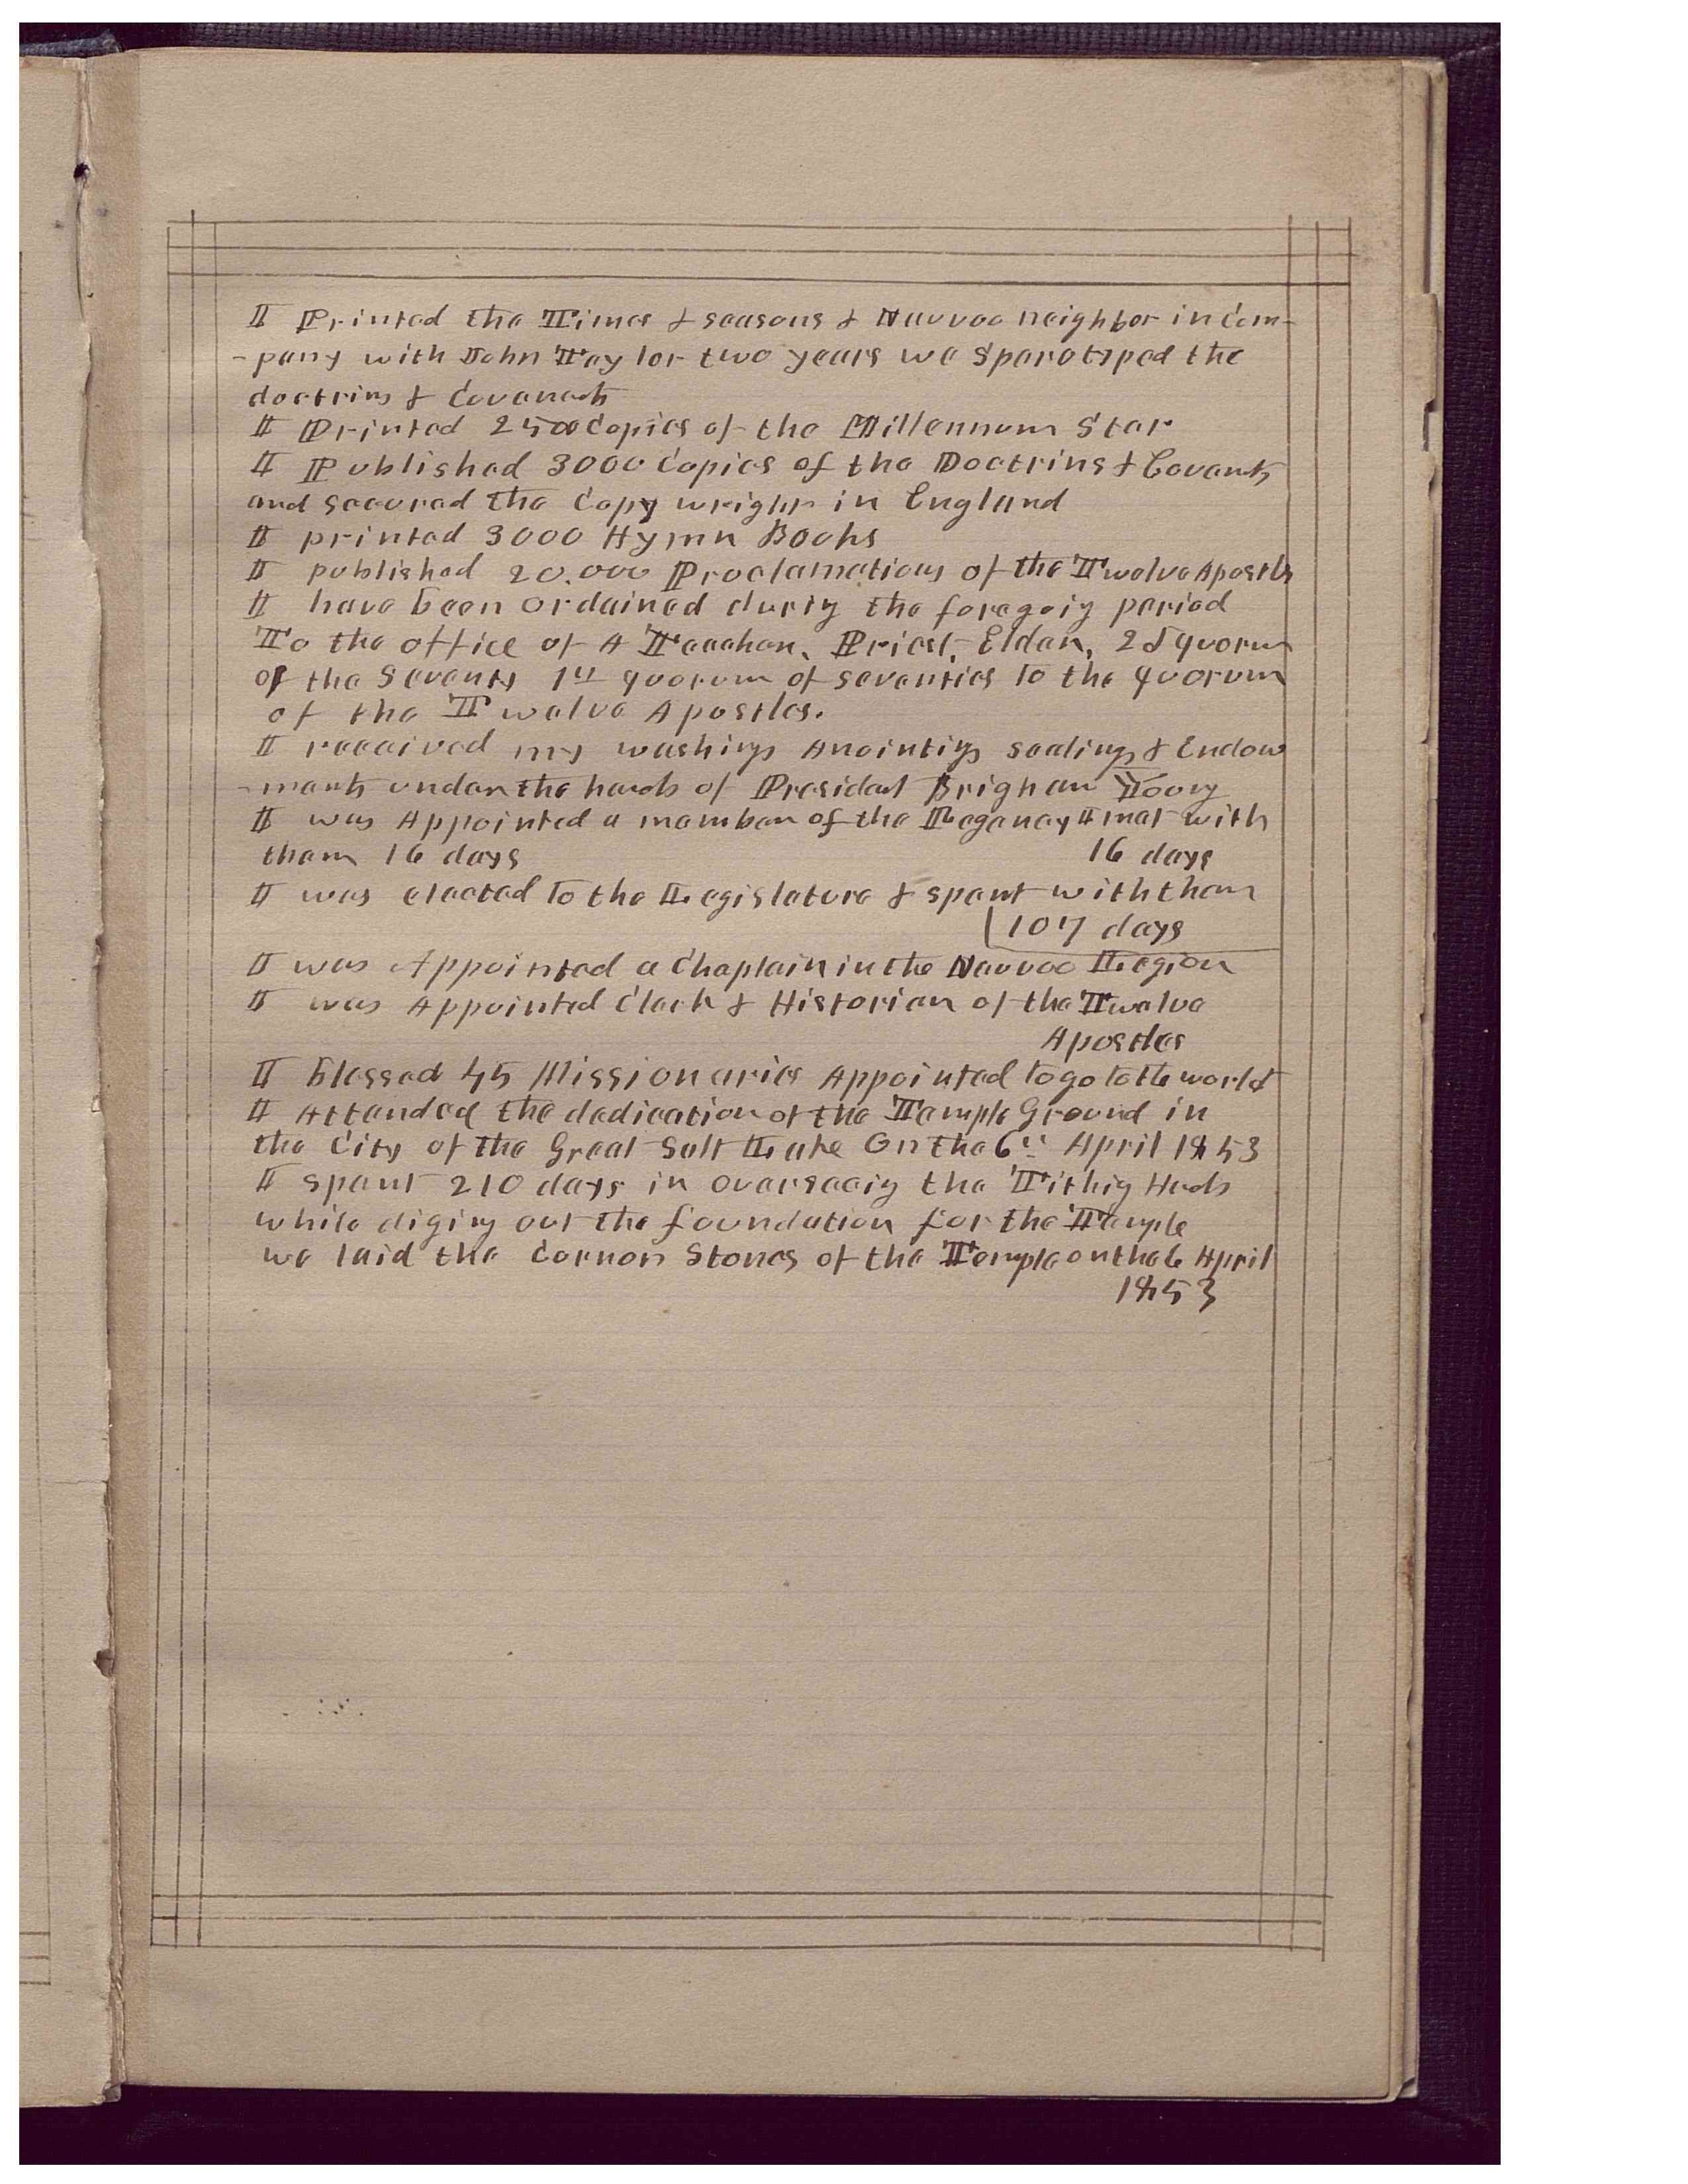 I Printed the Times & seasons & Nauvoo neighbor in Com-
-pany with John Taylor two years we Sparotyped the
doctrins & Covenants
I Printed 2500 Copies of the Millennum Star
I Published 3000 Copies of the Doctrins & Covants
and secured the Copy wright in England
I printed 3000 Hymn Books
I published 20.000 Proclamations of the Twelve Apostls
I have been ordained durig the foregoig period
To the office of A Teacher, Priest, Elder, 2d quorum
of the Seventy 1st quorum of seventies to the quorum
of the Twelve Apostles.
I received my washings Anointigs sealings & Endow
-ments under the hands of President Brigham Young
I was Appointed a member of the Regency I met with
them 16 days 16 days
I was elected to the Legislature & spent with them
107 days
I was Appointed a Chaplain in the Nauvoo Legion
I was Appointed Clerk & Historian of the Twelve
Apostles
I blessed 45 Missionaries Appointed to go to the world
I Attended the dedication of the Temple Ground in
the City of the Great Salt Lake On the 6th April 1853
I spent 210 days in overseeig the Tithig Hands
while digging out the foundation for the Temple
we laid the Corner Stones of the Temple on the 6 April
1853